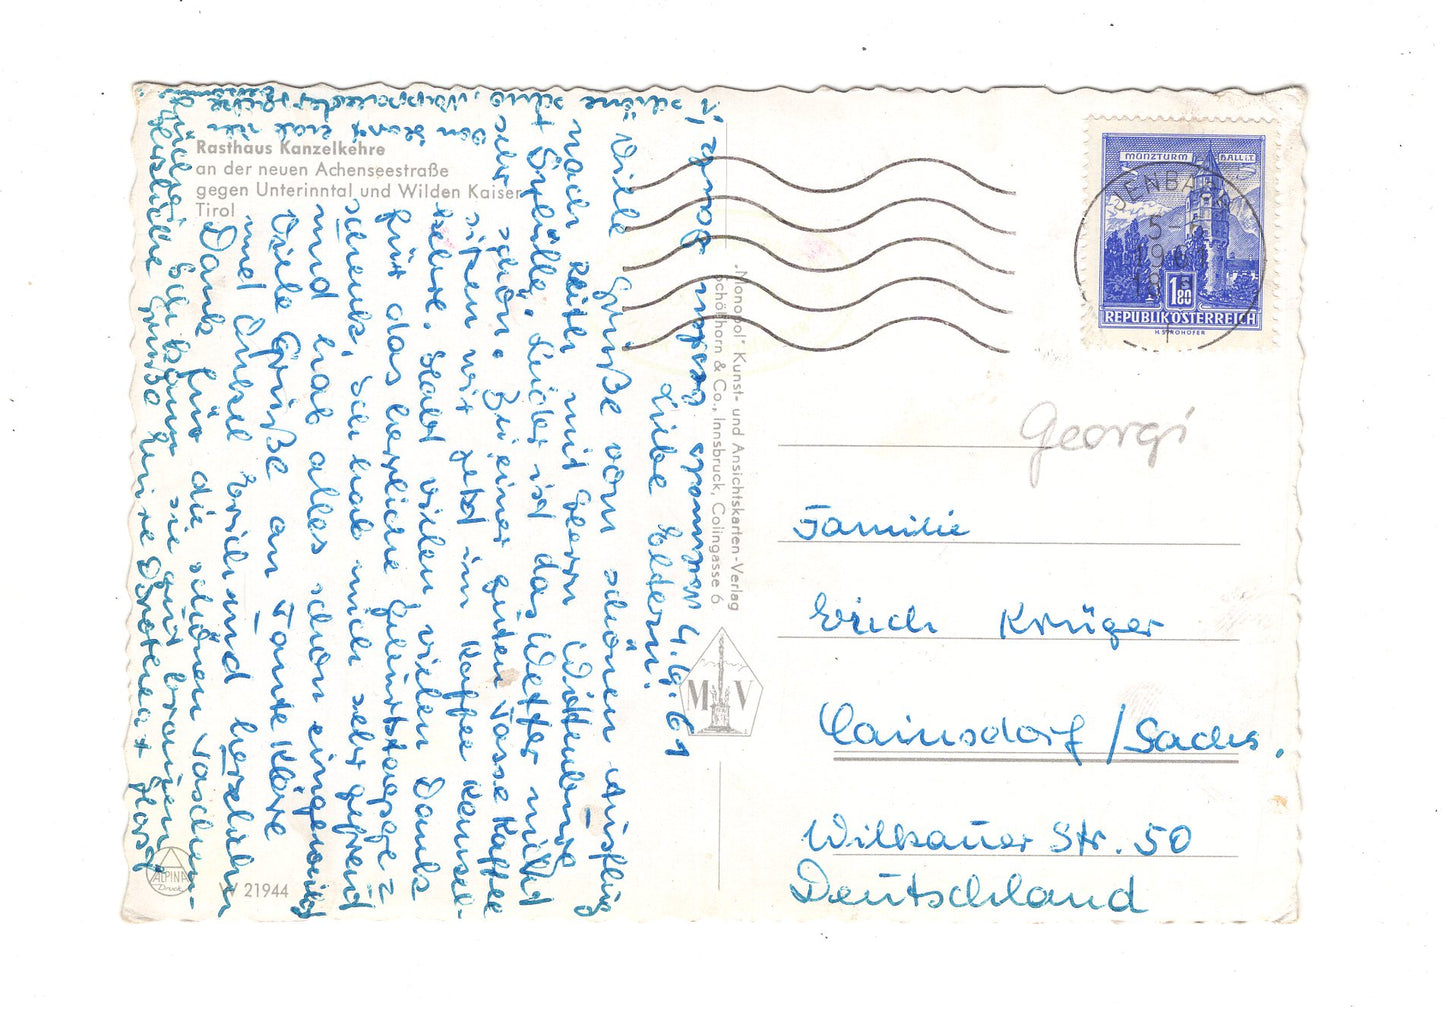 Rasthaus Kanzelkehre
an der neuen Achenseestraße
gegen Unterinntal und Wilden Kaiser
Tirol
4.6.61
Liebe Eltern!
Viele Grüße vom schönen Ausflug
nach Reith mit Herrn
Leider ist das Wetter nicht
sehr schön. Bei einer guten Tasse Kaffee
sitzen wir jetzt im Kaffee Kanzel-
kehre. Habt vielen vielen Dank
für das herrliche Geburtstagsge=
schenk. Ich hab mich sehr gefreut
und hab alles schon eingeweiht
Viele Grüße an Tante Kläre
und Onkel Erich und herzlichen
Dank für die schönen Taschen-
Ich kann sie gut brauchen
Grüße Eure Dorothea + Horst
"Monopol" Kunst- und Ansichtskarten-Verlag
Schöllhorn & Co., Innsbruck, Colingasse 6
MV
ALPINA
Druck
W 21944
MÜNZTURM HALL i.T.
JENBACH
S 1.80
REPUBLIK ÖSTERREICH
H. STROHOFER
Georgi
Familie
Erich Krüger
Cainsdorf/Sachs.
Wilkauer Str. 50
Deutschland